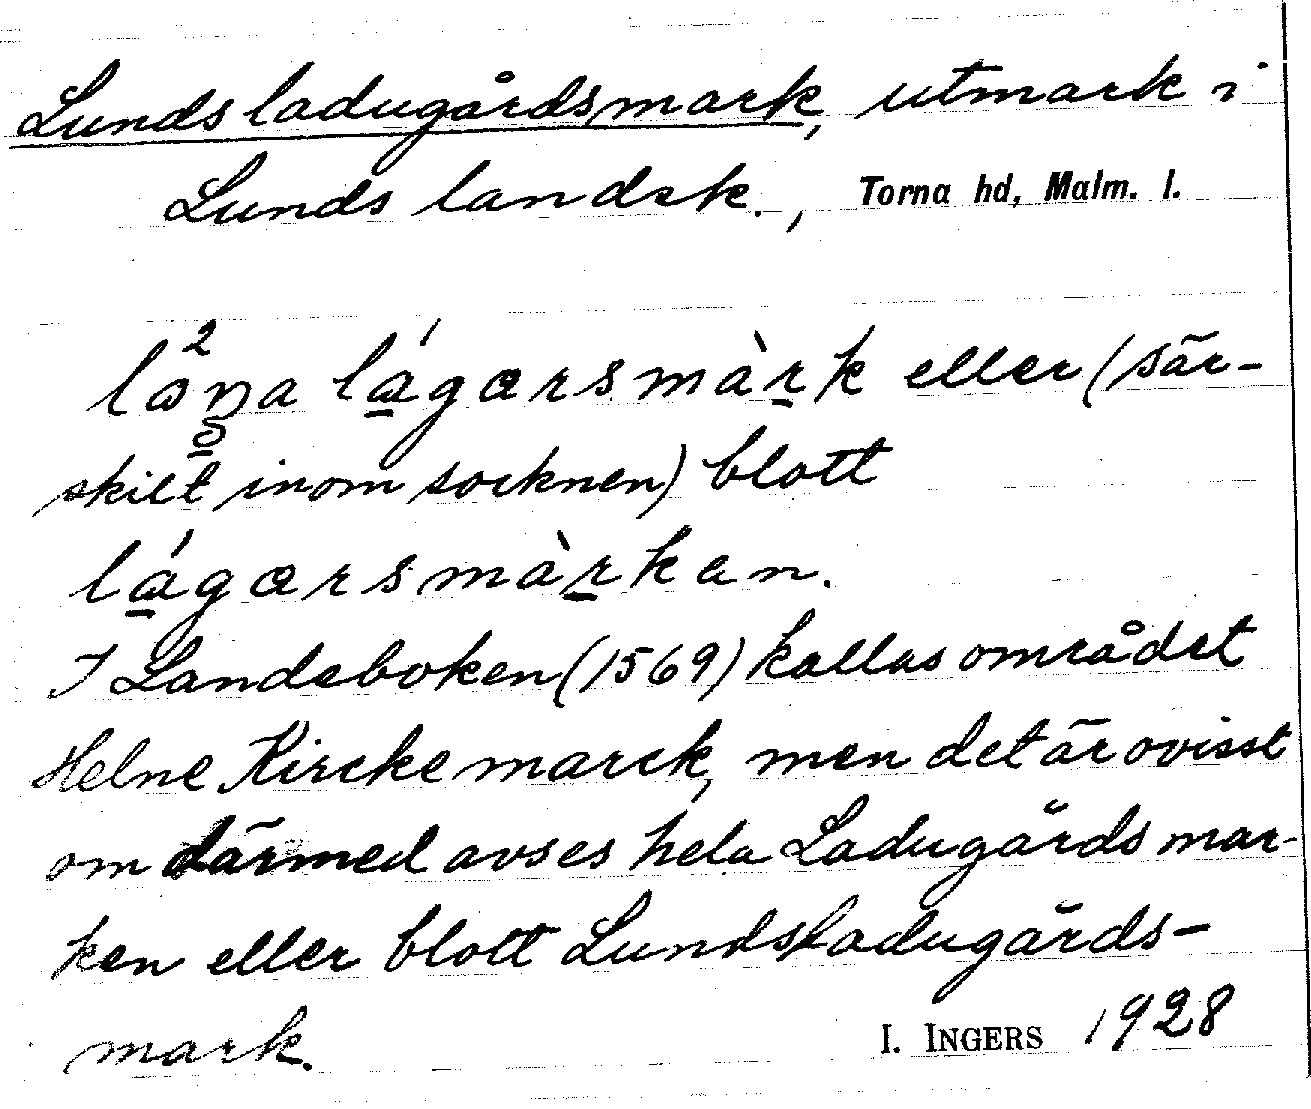 Lunds ladugårdsmark, utmark i
Lunds landsk., Torna hd, Malm. l.
eller (sär-
skilt inom socknen) blott
lágarsmàrkan.
I Landeboken (1569) kallas området
Helne Kircke marck, men det är ovisst
om därmed avses hela Ladugårdsmar-
ken eller blott Lundsladugårds-
mark.
I. INGERS 1928